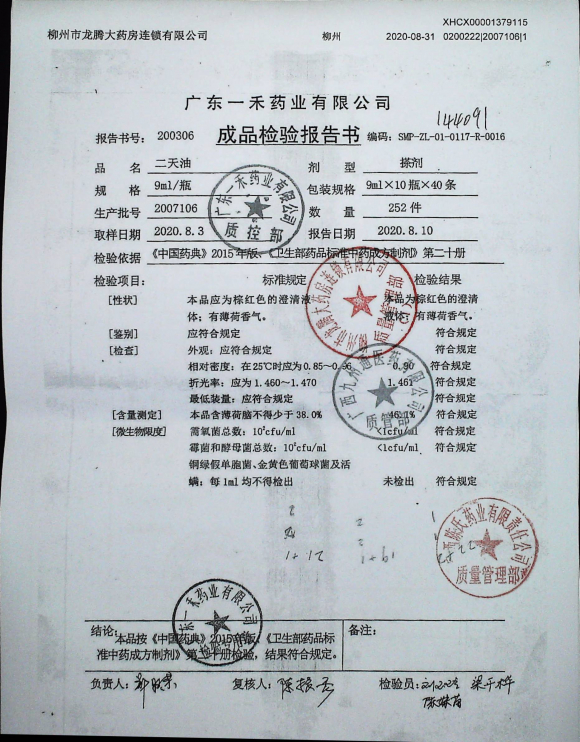 XHCX00001379115
柳州市龙腾大药房连锁有限公司 柳州 2020-08-31 0200222|2007106|1
广东一禾药业有限公司
144091
报告书号: 200306 成品检验报告书 编码: SMP-ZL-01-0117-R-0016
品 名 二天油 剂 型 搽剂
规 格 9ml/瓶 包装规格 9ml×10瓶×40条
生产批号 2007106 数 量 252件
取样日期 2020.8.3 报告日期 2020.8.10
检验依据 《中国药典》2015年版、《卫生部药品标准中药成方制剂》第二十册
检验项目: 标准规定 检验结果
[性状] 本品应为棕红色的澄清液 本品为棕红色的澄清
体;有薄荷香气。 液体;有薄荷香气。
[鉴别] 应符合规定 符合规定
[检查] 外观:应符合规定 符合规定
相对密度:在25℃时应为0.85~0.96 0.90 符合规定
折光率:应为1.460~1.470 1.461 符合规定
最低装量:应符合规定 符合规定
[含量测定] 本品含薄荷脑不得少于38.0% 46.1% 符合规定
[微生物限度] 需氧菌总数:10²cfu/ml <1cfu/ml 符合规定
霉菌和酵母菌总数:10²cfu/ml <1cfu/ml 符合规定
铜绿假单胞菌、金黄色葡萄球菌及活
螨:每1ml均不得检出 未检出 符合规定
广东一禾药业有限公司
质控部
柳州市龙腾大药房连锁有限公司
质量管理部
广西九州通医药有限公司
质管部
广西陈氏药业有限责任公司
质量管理部
广东一禾药业有限公司
检验专用章
结论: 本品按《中国药典》2015年版、《卫生部药品标 备注:
准中药成方制剂》第二十册检验,结果符合规定。
负责人: 复核人: 检验员: